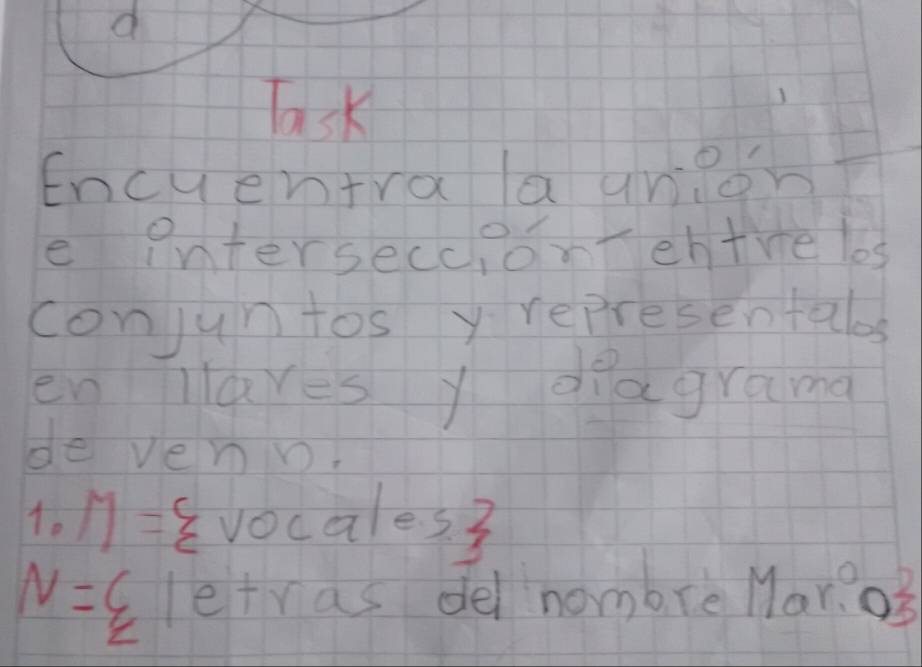 d
Task
Encuentra la unión
e intersección entre los
conjuntos y representalos
en llaves y diagrama
de venn.
1. M = {vocales}
N = {letras del nombre Mario}